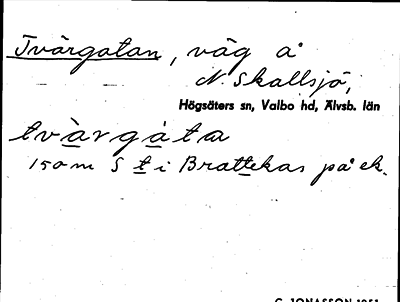 Tvärgatan, väg å
N. Skallsjö,
Högsäters sn, Valbo hd, Älvsb. län
tvàrgàta
150 m S t i Brattekas på ek.
C. JONASSON 1951